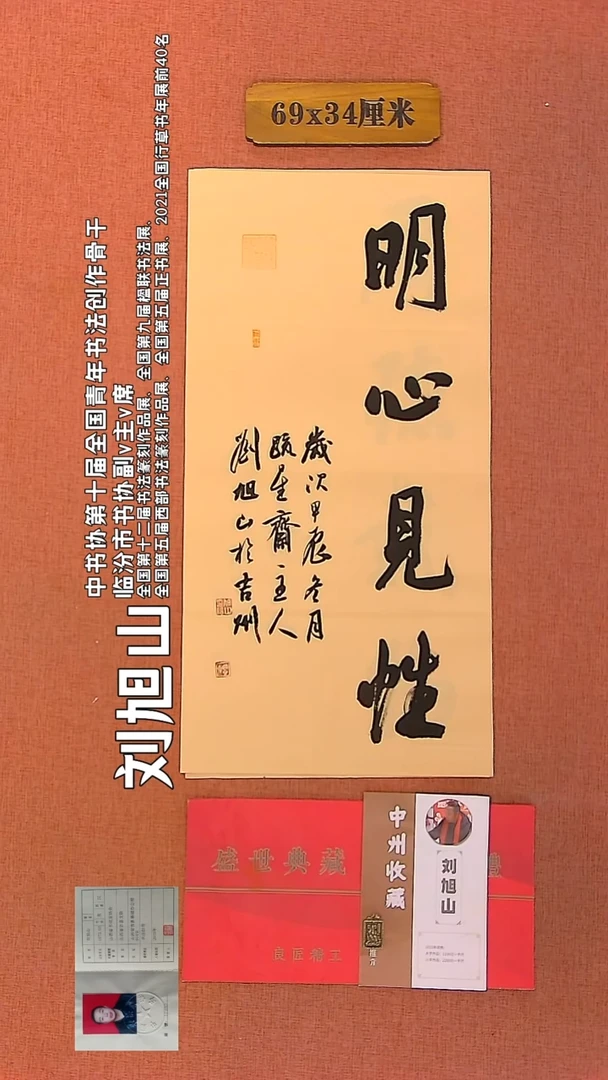 69x34厘米
明心見性
歲次甲辰冬月
跂星齋主人
劉旭山於吉州
刘旭山
中书协第十届全国青年书法创作骨干
临汾市书协副v主v席
全国第十二届书法篆刻作品展、全国第九届楹联书法展、
全国第五届西部书法篆刻作品展、全国第五届正书展、2021全国行草书年展前40名
盛世典藏
良匠精工
中州收藏
推介
刘旭山